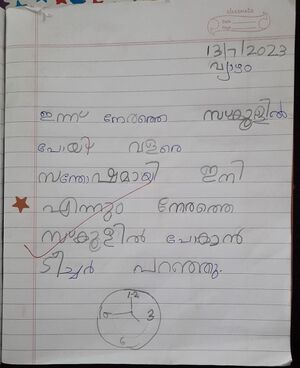 classmate
Date
Page
13/7/2023
വ്യാഴം
ഇന്ന് നേരത്തെ സ്കൂളിൽ
പോയി വളരെ
സന്തോഷമായി ഇനി
എന്നും നേരത്തെ
സ്കൂളിൽ പോകാൻ
ടീച്ചർ പറഞ്ഞു.
12
9 3
6